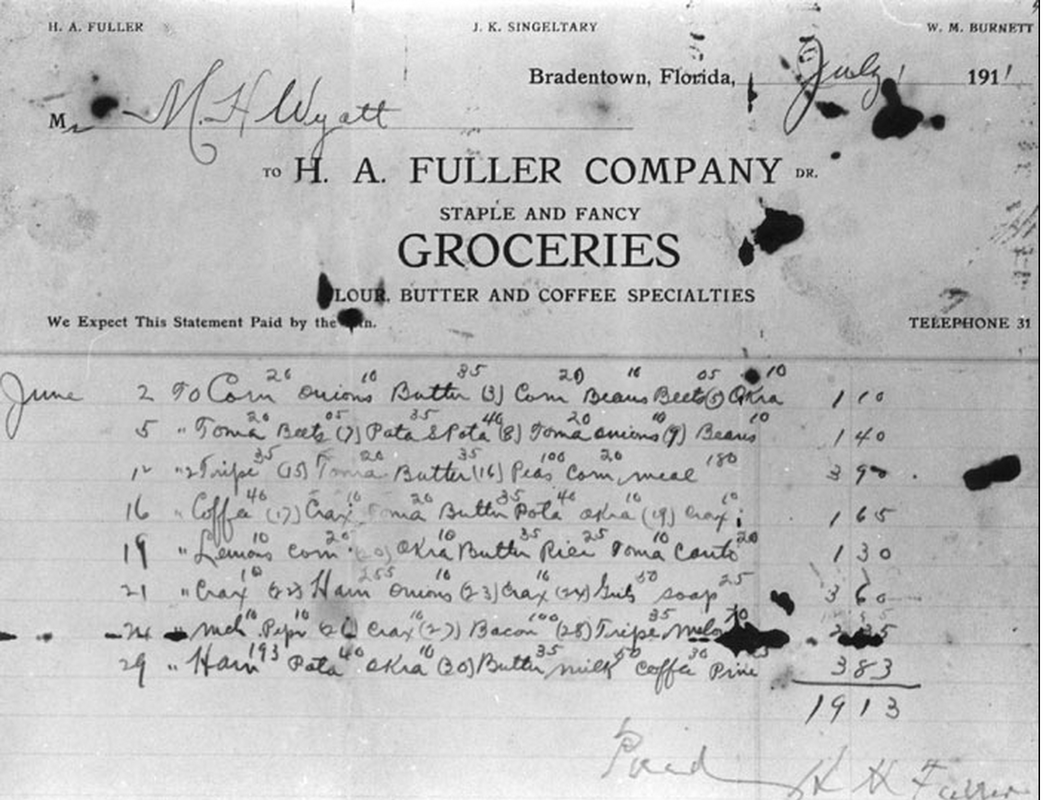 H. A. FULLER J. K. SINGELTARY W. M. BURNETT
Bradentown, Florida, July 1 1911
Mr M. H. Wyatt
TO H. A. FULLER COMPANY DR.
STAPLE AND FANCY
GROCERIES
LOUR, BUTTER AND COFFEE SPECIALTIES
We Expect This Statement Paid by the TELEPHONE 31
June 2 To Corn 20 Onions 10 Butter 35 (3) Corn 20 Beans 10 Beets 05 (5) Okra 10 1 10
5 " Toma 20 Beets 05 (7) Pota 35 & Pota 40 (8) Toma 20 onions 10 (9) Beans 10 1 40
12 " Tripe 35 (15) Toma 20 Butter 35 (16) Peas 100 Corn 20 meal 180 3 90
16 " Coffee 40 (17) Crax 10 Toma 20 Butter 35 Pota 40 okra 10 (19) Crax 10 1 65
19 " Lemons 10 Corn 20 (20) Okra 10 Butter 35 Rice 25 Toma 10 Canto 20 1 30
21 " Crax 10 Ham 255 Onions 10 (23) Crax 10 (24) 50 soap 25 3 60
24 " 10 Pepr 10 Crax 10 (27) Bacon 100 (28) Tripe 35 Melon
29 " Ham 193 Pota 40 Okra 10 (30) Butter 35 milk 50 coffee 30 3 83
19 13
Paid H A Fuller